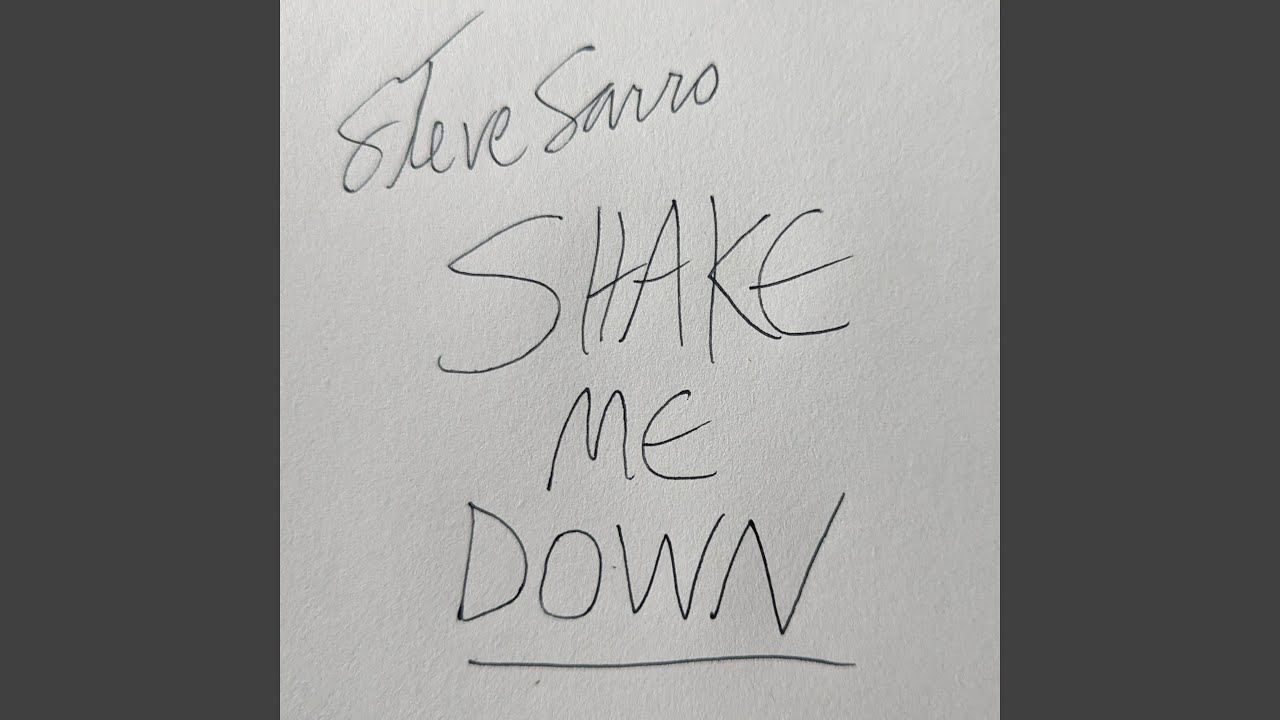 Steve Sarro
SHAKE
ME
DOWN